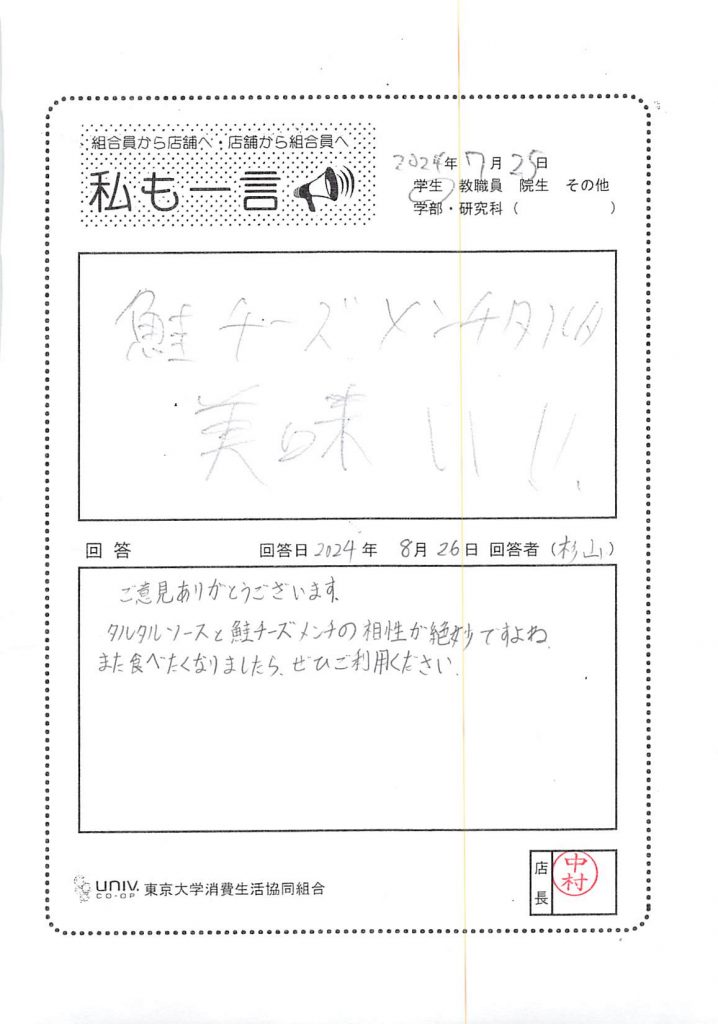 組合員から店舗へ・店舗から組合員へ
私も一言
2024年 7月25日
学生 教職員 院生 その他
学部・研究科（ ）
鮭チーズメンチタルタ
美味いい.
回答 回答日2024年 8月26日 回答者（杉山）
ご意見ありがとうございます。
タルタルソースと鮭チーズメンチの相性が絶妙ですよね。
また食べたくなりましたら、ぜひご利用ください。
UNIV. CO-OP 東京大学消費生活協同組合
店長 中村